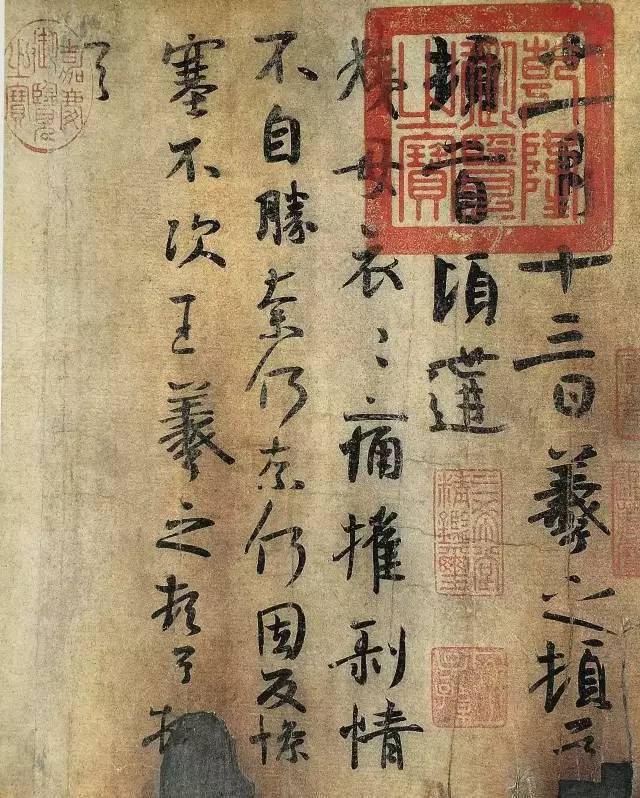 十一月十三日羲之頓首
頓首頃遘
姨母哀〻痛摧剝情
不自勝奈何奈何因反慘
塞不次王羲之頓首頓
首
乾隆御覽之寶
三希堂精鑑璽
嘉慶御覽之寶